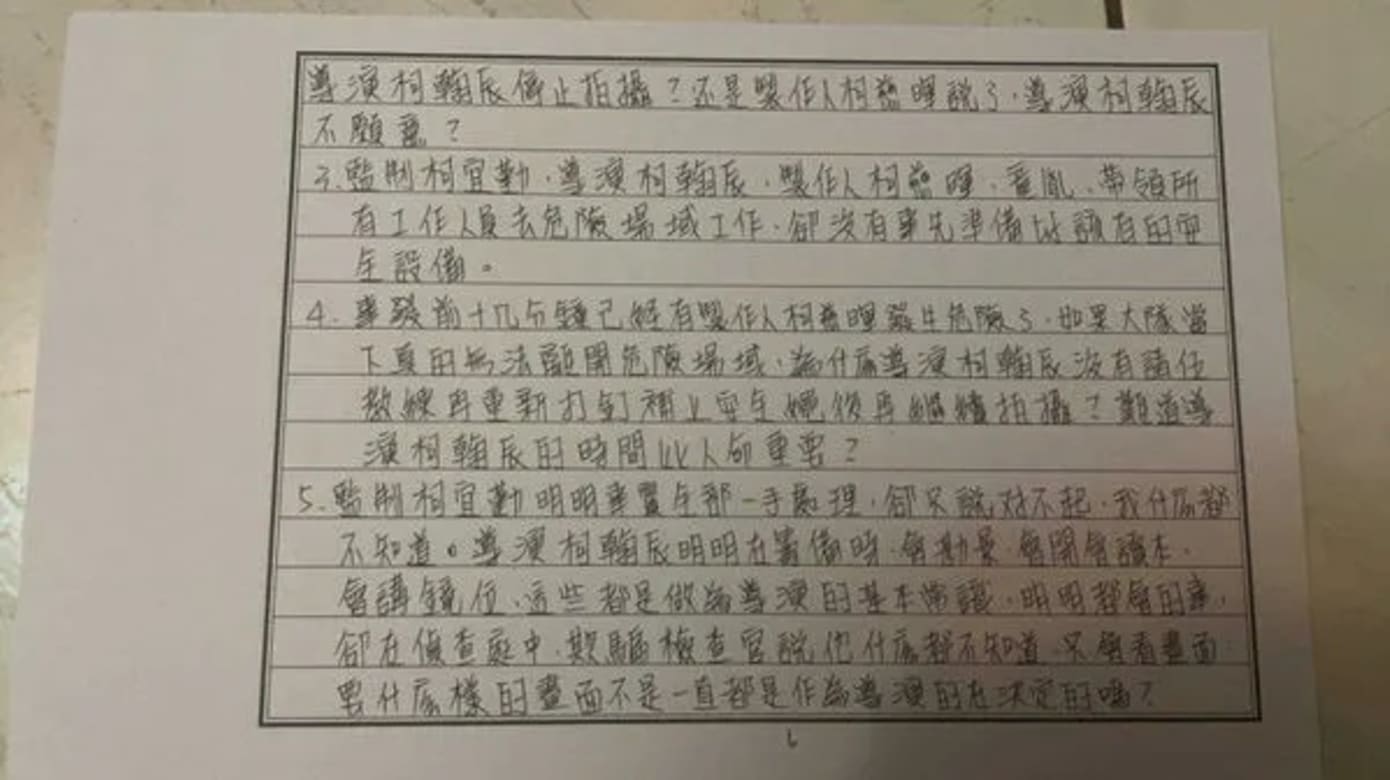 導演柯翰辰停止拍攝？还是製作人柯慈暉說了，導演柯翰辰
不願意？
3.監制柯宜勤，導演柯翰辰，製作人柯慈暉、帶領所
有工作人員去危險場域工作，卻沒有事先準備好該有的安
全設備。
4.事發前十几分鐘已經有製作人柯慈暉發生危險了，如果大隊當
下真的無法離開危險場域，為什麼導演柯翰辰沒有請伍
教練再重新打釘補上安全繩後再繼續拍攝？難道導
演柯翰辰的時間比人命重要？
5.監制柯宜勤明明事置全部一手處理，卻只說对不起，我什麼都
不知道。導演柯翰辰明明在籌備時，會勘景，會開會讀本，
會講鏡位，這些都是做為導演的基本常識，明明都會的事，
卻在偵查庭中，欺騙檢查官說他什麼都不知道，只會看畫面
要什麼樣的畫面不是一直都是作為導演的在決定的嗎？